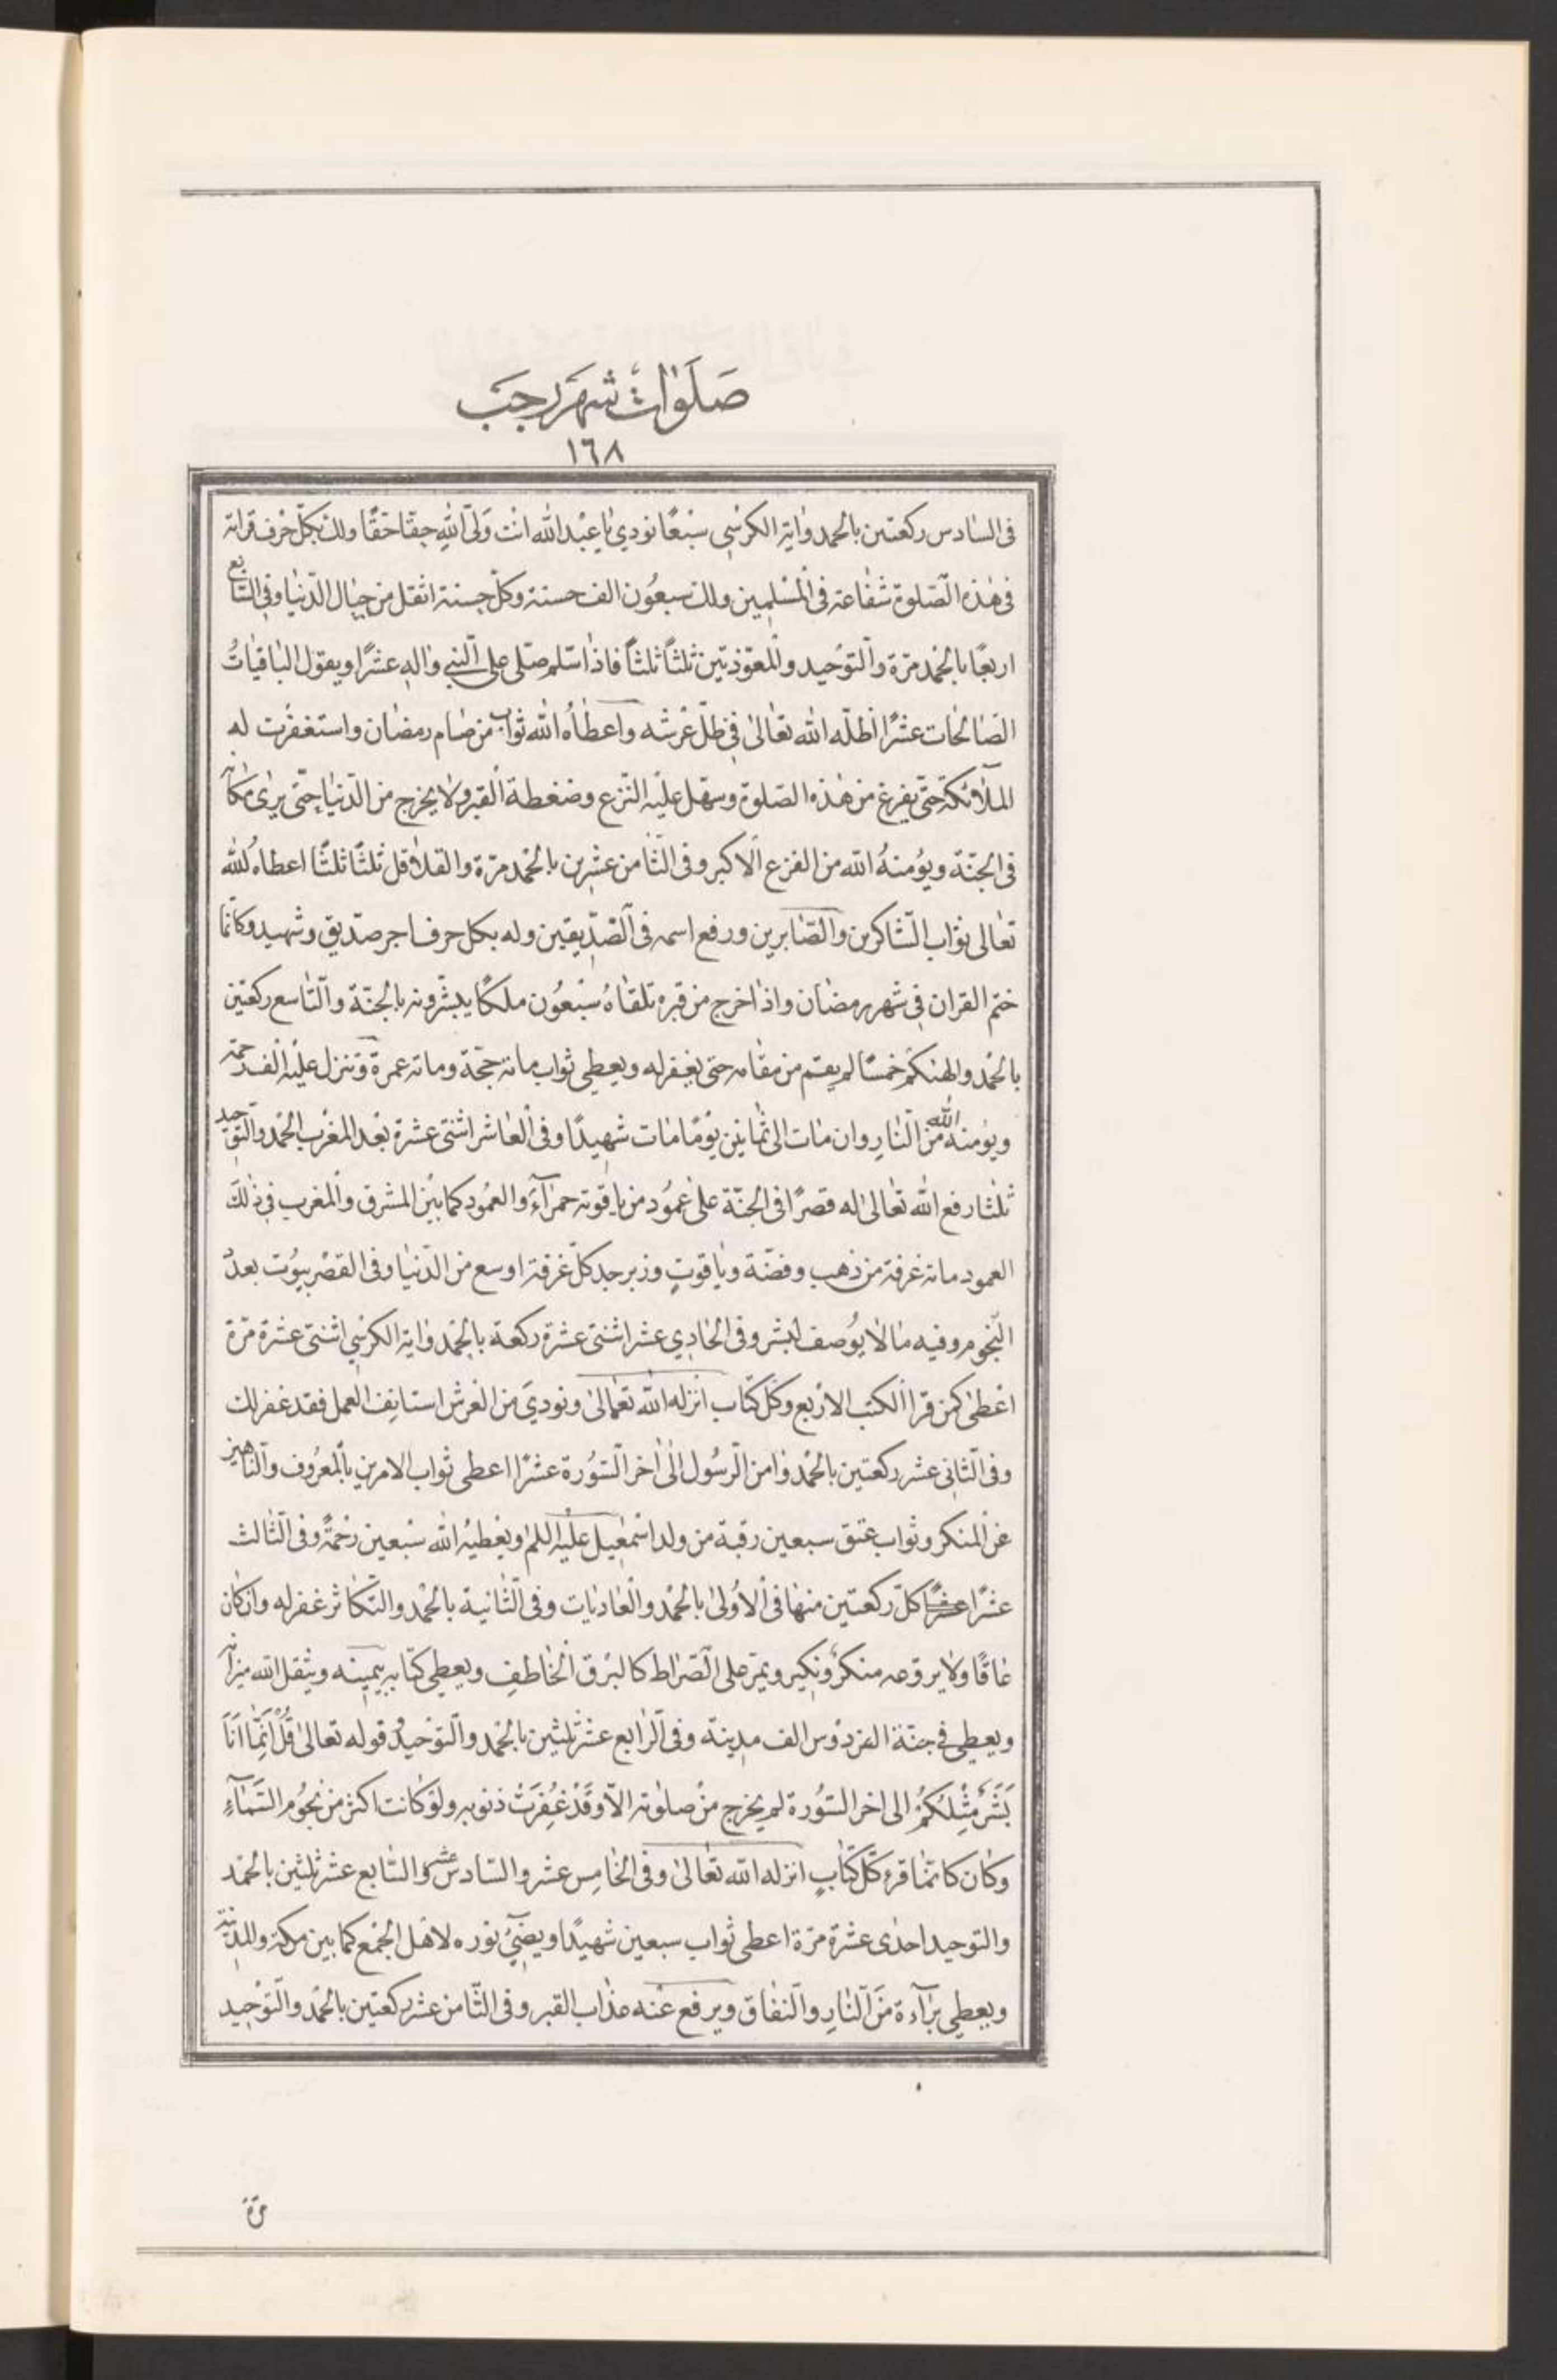 صَلَوٰاتُ شَهْرِ رَجَبَ
١٦٨
فى السٰادس ركعتين بالحمد وٰاية الكرسي سَبْعًا نودي يٰا عَبْد الله انت وَلىّ اللهِ حقّا حَقًّا ولك بكلّ حرف قراته
فى هٰذه الصّلوة شفٰاعة فى المُسْلمِين ولك سبعُون الف حسنة وكلّ حسنة اثقل من جبٰال الدّنيٰا وفى السّٰابع
اربعًا بالحمْد مرّة والتّوحيد والمعوّذتين ثلثاً ثلثاً فاذٰا سلّم صلّى على النّبي وٰاله عشرًا ويقول البٰاقيٰاتُ
الصّٰالحٰات عشرًا اظلّه الله تعٰالىٰ فى ظلّ عَرْشه واعطٰاهُ الله ثوٰاب من صٰام رمضٰان واستغفَرت له
الملٰائكة حتّى يفرغ من هٰذه الصّلوة وسهّل عليْه النّزع وضغطة القبر ولا يخرج من الدّنيٰا حتّى يرىٰ مكٰانه
فى الجنّة ويؤمنهُ الله من الفزع الاكبر وفى الثّٰامن عشرين بالحمْد مرّة والقلاقل ثلثًا ثلثًا اعطاهُ الله
تعٰالى ثوٰاب الشّٰاكرين والصّٰابرين ورفع اسمه فى الصّدّيقين وله بكل حرف اجر صدّيق وشهيد وكانّما
ختم القران فى شهر رمضٰان واذٰا خرج من قبره تلقٰاهُ سَبْعُون ملكًا يبشّرونه بالجنّة والتّٰاسع ركعتين
بالحمْد والهٰيكم خمسًا لم يقم من مقٰامه حتى يغفر له ويعطى ثواب مائة حجّة ومائة عمرة وتنزل عليْه الف رحمة
ويؤمنه الله من النّٰارِ وان مٰات الى ثمٰانين يَوْمًا مٰات شهيدًا وفى العٰاشر اثنتى عشرة بعْد المغْرب الحمْد والتّوحيد
ثلثا رفع الله تعٰالىٰ له قصرًا فى الجنّة علىٰ عَمُود من يٰاقوتة حمرٰآء والعمُود كمٰا بيْن المشرق والمغرب فى ذٰلكَ
العمود مائة غرفة من ذهب وفضّة ويٰاقوتٍ وزبرجد كلّ غرفة اوسع من الدّنيٰا وفى القصْر بيوُت بعدد
النّجوم وفيه مٰا لا يُوصف لبشر وفى الحٰادي عشر اثنتى عشرة ركعة بالحمْد وٰاية الكرسي اثنتى عشرة مرّة
اعْطىٰ كمن قرا الكتب الارْبع وكلّ كتٰاب انزله الله تعٰالىٰ ونوديَ من العَرش استانف العمل فقد غفر لك
وفى الثّانى عشر ركعتين بالحمْد وٰامن الرّسُول الىٰ اٰخر السّوُرة عشرًا اعطى ثواب الامرين بالمعرُوف والنّٰاهين
عن المنكر وثواب عتق سبعين رقبة من ولد اسْمعيل عليْه السلم ويعْطيهُ الله سَبْعين رَحْمةً وفى الثّالث
عشرًا كلّ ركعتين منهٰا فى الاُولىٰ بالحمْد والعٰاديٰات وفى الثّٰانية بالحمْد والتّكٰاثر غفر له وان كٰان
عٰاقًّا ولا يروّعه منكرٌ ونكير ويمرّ على الصّرٰاط كالبَرْق الخٰاطف ويعطى كتابه بيمينه ويثقل الله ميزٰانه
ويعطى فى جنّة الفردَوْس الف مدينة وفى الرّٰابع عشر ثلثين بالحمْد والتّوْحيد وقوله تعٰالىٰ قُلْ اِنَّمٰا اَنَا
بَشَرٌ مِثْلُكُمْ الى اخر السّوُرة لم يخرج منْ صلوٰته الاّ وَقَدْ غُفِرَتْ ذنوبه ولَوْ كٰانت اكثر من نجُوم السّمٰآءِ
وكٰان كانّمٰا قرء كلّ كتٰابٍ انزله الله تعٰالىٰ وفى الخٰامِس عشر والسّادس عشر والسّٰابع عشر ثلثين بالحمْد
والتوحيد احدى عشرة مرّة اعطى ثواب سبعين شهيدًا ويضىُ نوره لاهْل الجمْع كما بين مكة والمدينة
ويعطى برٰآءة مَن النّٰارِ والنّفٰاق ويرفع عَنْه عذٰاب القبر وفى الثّامن عشر ركعتين بالحمْد والتّوْحيد
مرّة